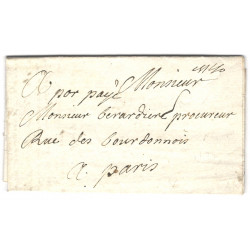 A por payé Monsieur
Monsieur berardier procureur
Rue des bourdonnois
a paris